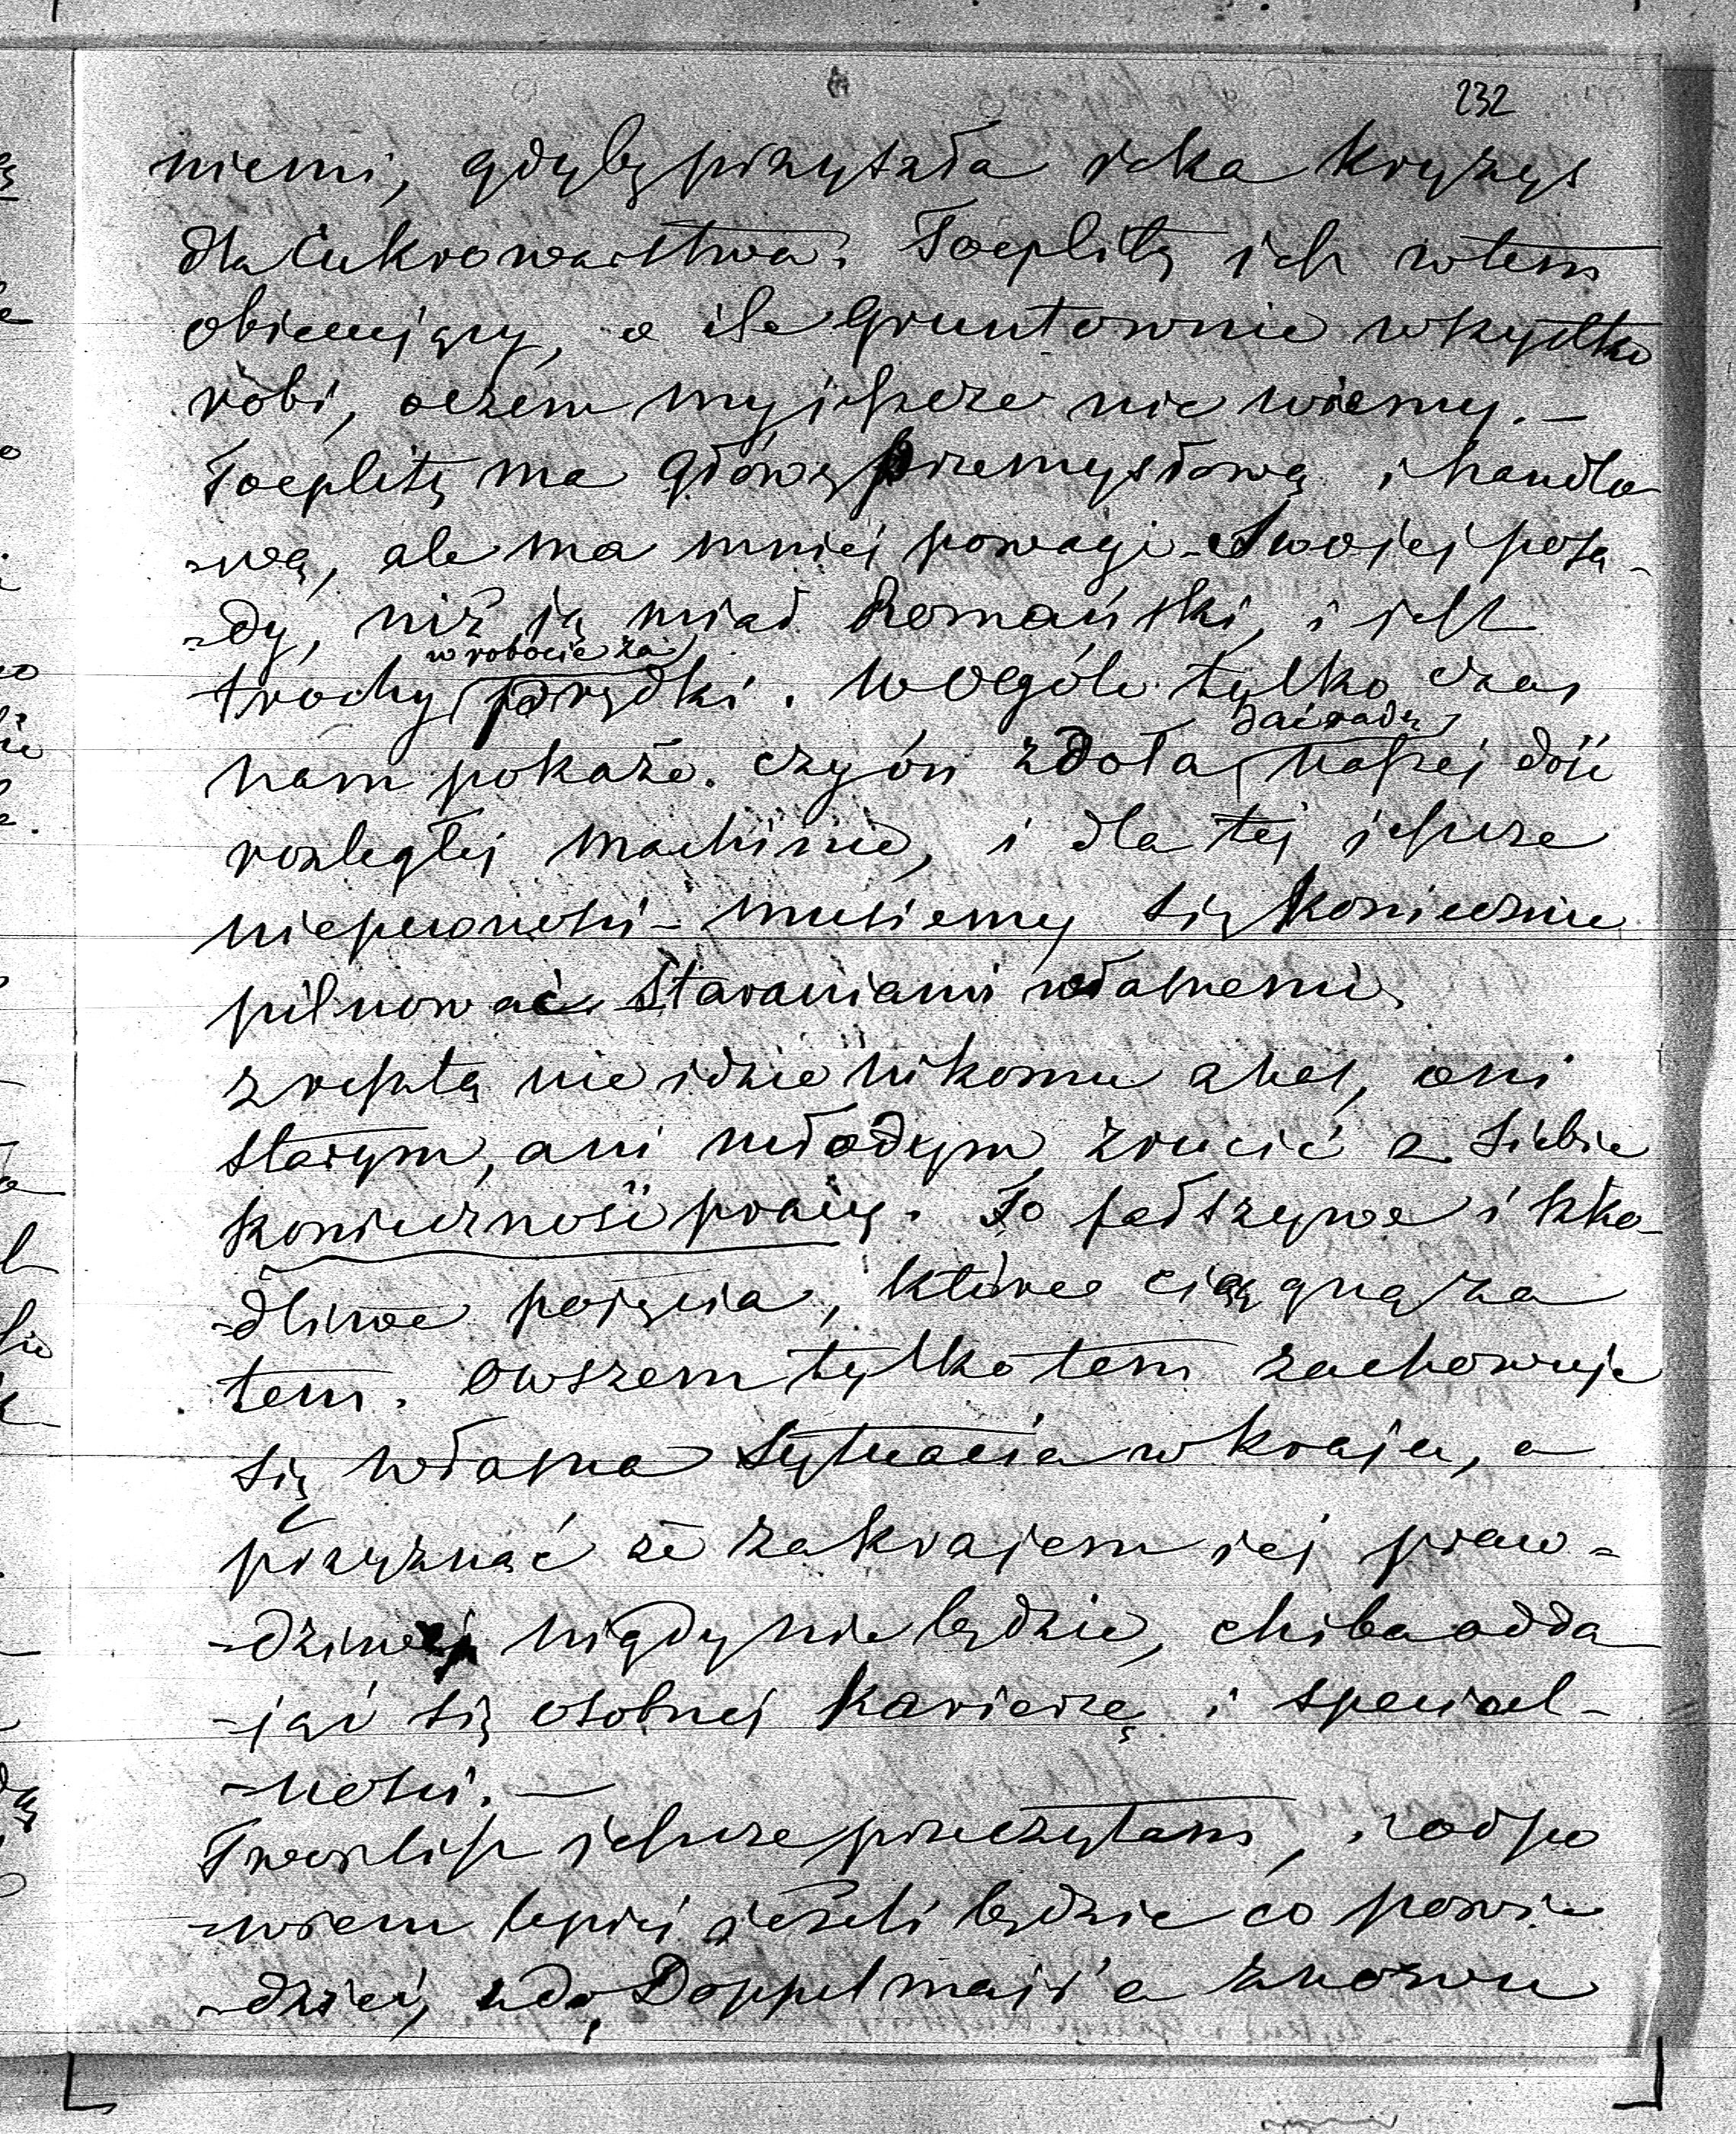 232
niemi, gdyby przyszła jaka kryzys
dla Cukrowarstwa. Toeplitz jest w tem
obiecujący, o ile gruntownie wszystko
robi, o czem my jeszcze nie wiemy. —
Toeplitz ma głowę przemysłową i handlo-
-wą, ale ma mniej powagi swojej posa-
-dy, niż ją miał Romański, i jest
trochę w robocie za prędki. W ogóle tylko czas
nam pokaże. czy on zdoła dać radę naszej dość
rozległej machinie, i dla tej jeszcze
niepewności - musiemy się koniecznie
pilnować staraniami własnemi.
zresztą nie idzie nikomu z nas, ani
starym, ani młodym zrucić z siebie
konieczność pracy. To fałszywe i szko-
-dliwe pojęcia, które ciągną za
tem. Owszem tylko tem zachowuje
się własna sytuacia w kraju, a
przyznać że za krajem jej praw-
-dziwej nigdy nie będzie, chiba odda-
-jąć się osobnej karierzę i special-
-nosci. —
Twoj list jeszcze przeczytam, i odpo
-wiem lepiej jeżeli będzie co powie
-dzieć, do Doppelmajr'a znowu